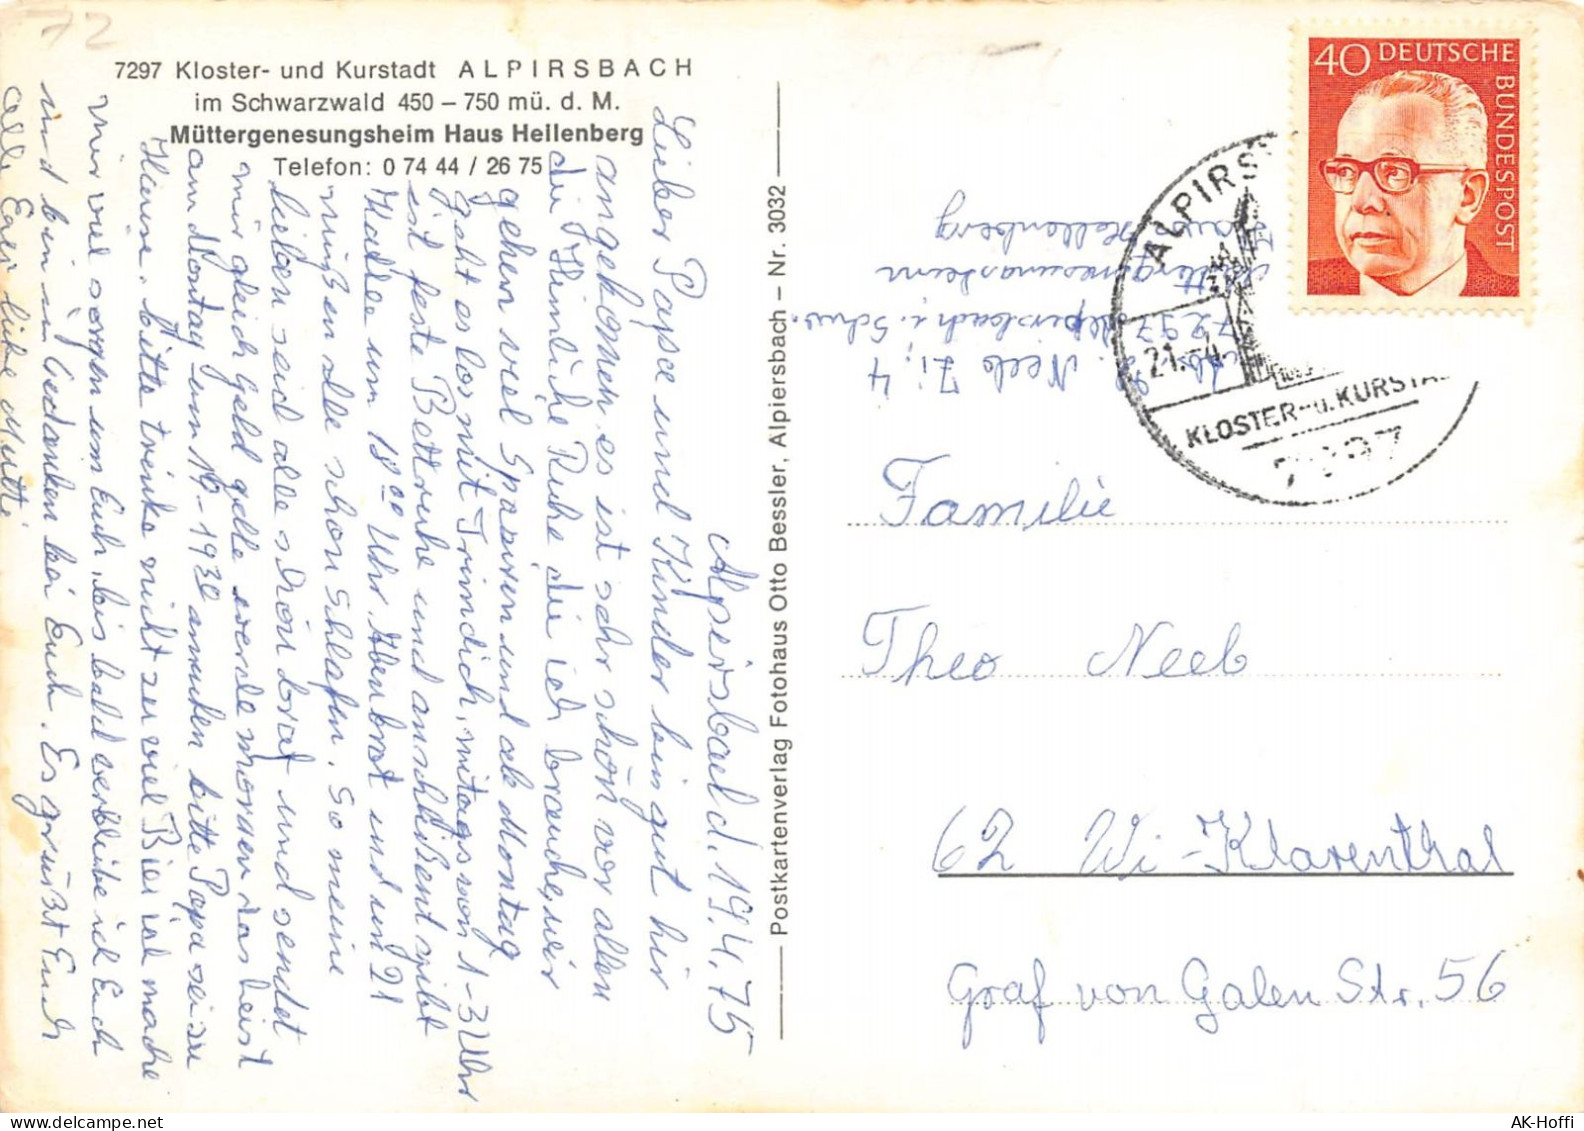 72
7297 Kloster- und Kurstadt ALPIRSBACH
im Schwarzwald 450 – 750 mü. d. M.
Müttergenesungsheim Haus Heilenberg
Telefon: 0 74 44 / 26 75
Alpirsbach d. 19.4.75
Lieber Papa und Kinder bin gut hir
angekomen es ist sehr schön vor allen
die Himliche Ruhe die ich brauche, wir
gehen viel Spaziren und ab Montag
geht es los mit Trimdich, mitags von 1-3 Uhr
ist feste Bettruhe und anschlißent gibt
Kaffe um 18⁰⁰ Uhr Abenbrot und um 21
müßen alle schon Schlafen. So meine
lieben seid alle schön braf und sendet
mir gleich Geld
am Montag um 19-1930 anrufen bitte Papa sei zu
Hause, bitte trinke nicht zu viel Bier ich mache
mir viel sorgen um Euch, bis bald verbleibe ich Euch
und bin in Gedanken bei Euch. Es grüßt Euch
alle Eure liebe Mutti
Postkartenverlag Fotohaus Otto Bessler, Alpiersbach – Nr. 3032
Abs. R. Neeb Zi: 4
7297 Alpirsbach i. Schw.
Müttergenesungsheim
Haus Hellenberg
40 DEUTSCHE
BUNDESPOST
ALPIRS
21.-4.
KLOSTER- u. KURSTA
Familie
Theo Neeb
62 Wi-Klarenthal
Graf von Galen Str. 56
AK-Hoffi